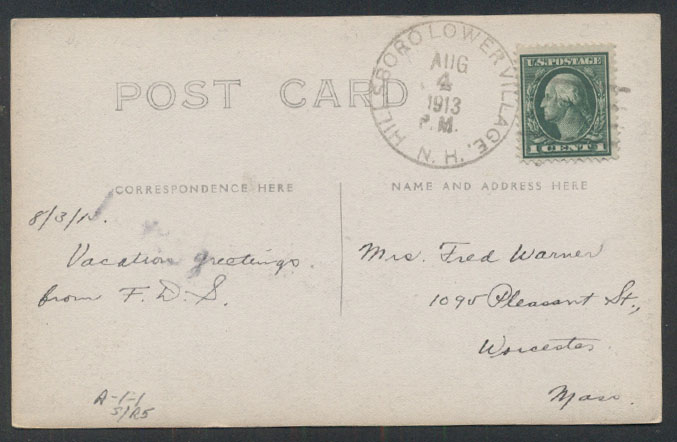 POST CARD
HILLSBORO LOWER VILLAGE, N.H.
AUG
4
1913
P.M.
U.S. POSTAGE
1 CENT 1
CORRESPONDENCE HERE
NAME AND ADDRESS HERE
Vacation greetings.
from F. D. S.
Mrs. Fred Warner
1095 Pleasant St.,
Worcester.
Mass.
A-1-1